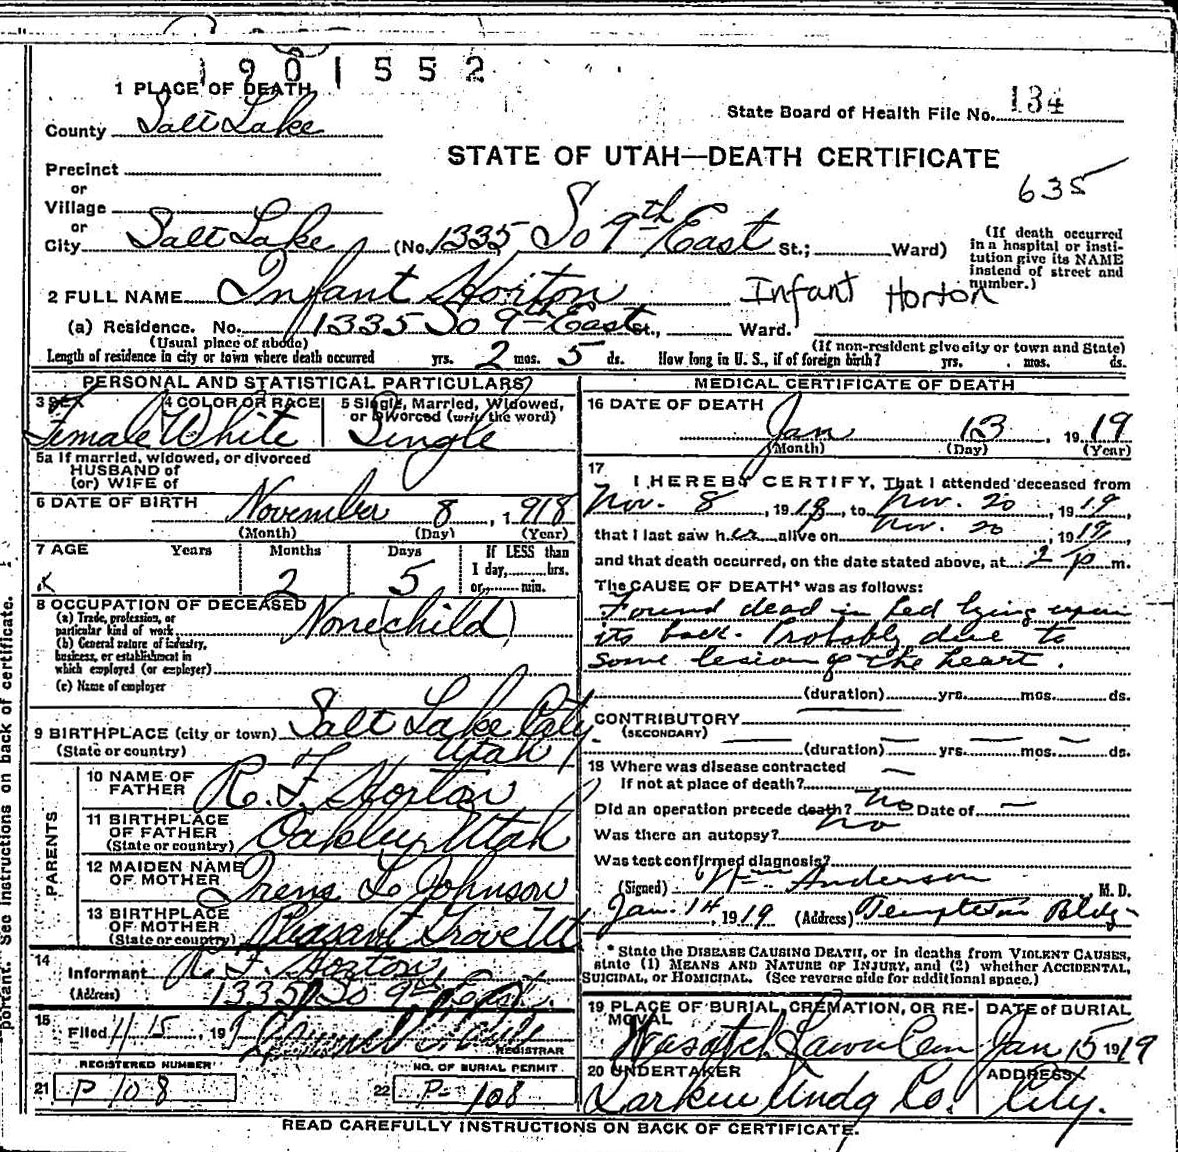 1901552
1 PLACE OF DEATH
State Board of Health File No. 134
County Salt Lake
STATE OF UTAH—DEATH CERTIFICATE
Precinct
635
or
Village
or
City Salt Lake (No. 1335 So 9th East St.; Ward)
(If death occurred in a hospital or insti-
tution give its NAME
instead of street and
number.)
2 FULL NAME Infant Horton Infant Horton
(a) Residence. No. 1335 So 9th East St., Ward.
(Usual place of abode) (If non-resident give city or town and State)
Length of residence in city or town where death occurred yrs. 2 mos. 5 ds. How long in U. S., if of foreign birth? yrs. mos. ds.
PERSONAL AND STATISTICAL PARTICULARS
3 SEX 4 COLOR OR RACE 5 Single, Married, Widowed,
or Divorced (write the word)
Female White Single
5a If married, widowed, or divorced
HUSBAND of
(or) WIFE of
6 DATE OF BIRTH November 8, 1918
(Month) (Day) (Year)
7 AGE Years Months Days If LESS than
1 day, hrs.
or min.
2 5
8 OCCUPATION OF DECEASED None (child)
(a) Trade, profession, or
particular kind of work
(b) General nature of industry,
business, or establishment in
which employed (or employer)
(c) Name of employer
9 BIRTHPLACE (city or town) Salt Lake City
(State or country) Utah
PARENTS
10 NAME OF
FATHER R. F. Horton
11 BIRTHPLACE
OF FATHER
(State or country) Oakley Utah
12 MAIDEN NAME
OF MOTHER Irene L. Johnson
13 BIRTHPLACE
OF MOTHER
(State or country) Pleasant Grove Ut
14
Informant R. F. Horton
(Address) 1335 So 9th East.
15
Filed 1/15, 19
REGISTRAR
REGISTERED NUMBER NO. OF BURIAL PERMIT
21 P 108 22 P-108
MEDICAL CERTIFICATE OF DEATH
16 DATE OF DEATH
Jan 13, 1919
(Month) (Day) (Year)
17
I HEREBY CERTIFY, That I attended deceased from
Nov. 8, 1918, to Nov. 20, 1919,
that I last saw her alive on Nov. 20, 1919,
and that death occurred, on the date stated above, at 2 p m.
The CAUSE OF DEATH* was as follows:
Found dead in bed lying upon
its back. Probably due to
some lesion of the heart.
(duration) yrs. mos. ds.
CONTRIBUTORY
(SECONDARY)
(duration) yrs. mos. ds.
18 Where was disease contracted
If not at place of death?
Did an operation precede death? no Date of
Was there an autopsy? no
Was test confirmed diagnosis?
(Signed) Anderson, M. D.
Jan. 14, 1919 (Address) Templeton Bldg
* State the DISEASE CAUSING DEATH, or in deaths from VIOLENT CAUSES,
state (1) MEANS AND NATURE OF INJURY, and (2) whether ACCIDENTAL,
SUICIDAL, or HOMICIDAL. (See reverse side for additional space.)
19 PLACE OF BURIAL, CREMATION, OR RE-
MOVAL
DATE of BURIAL
Wasatch Lawn Cem Jan 15 1919
20 UNDERTAKER ADDRESS
Larkin Undg Co. City.
READ CAREFULLY INSTRUCTIONS ON BACK OF CERTIFICATE.
portant. See instructions on back of certificate.